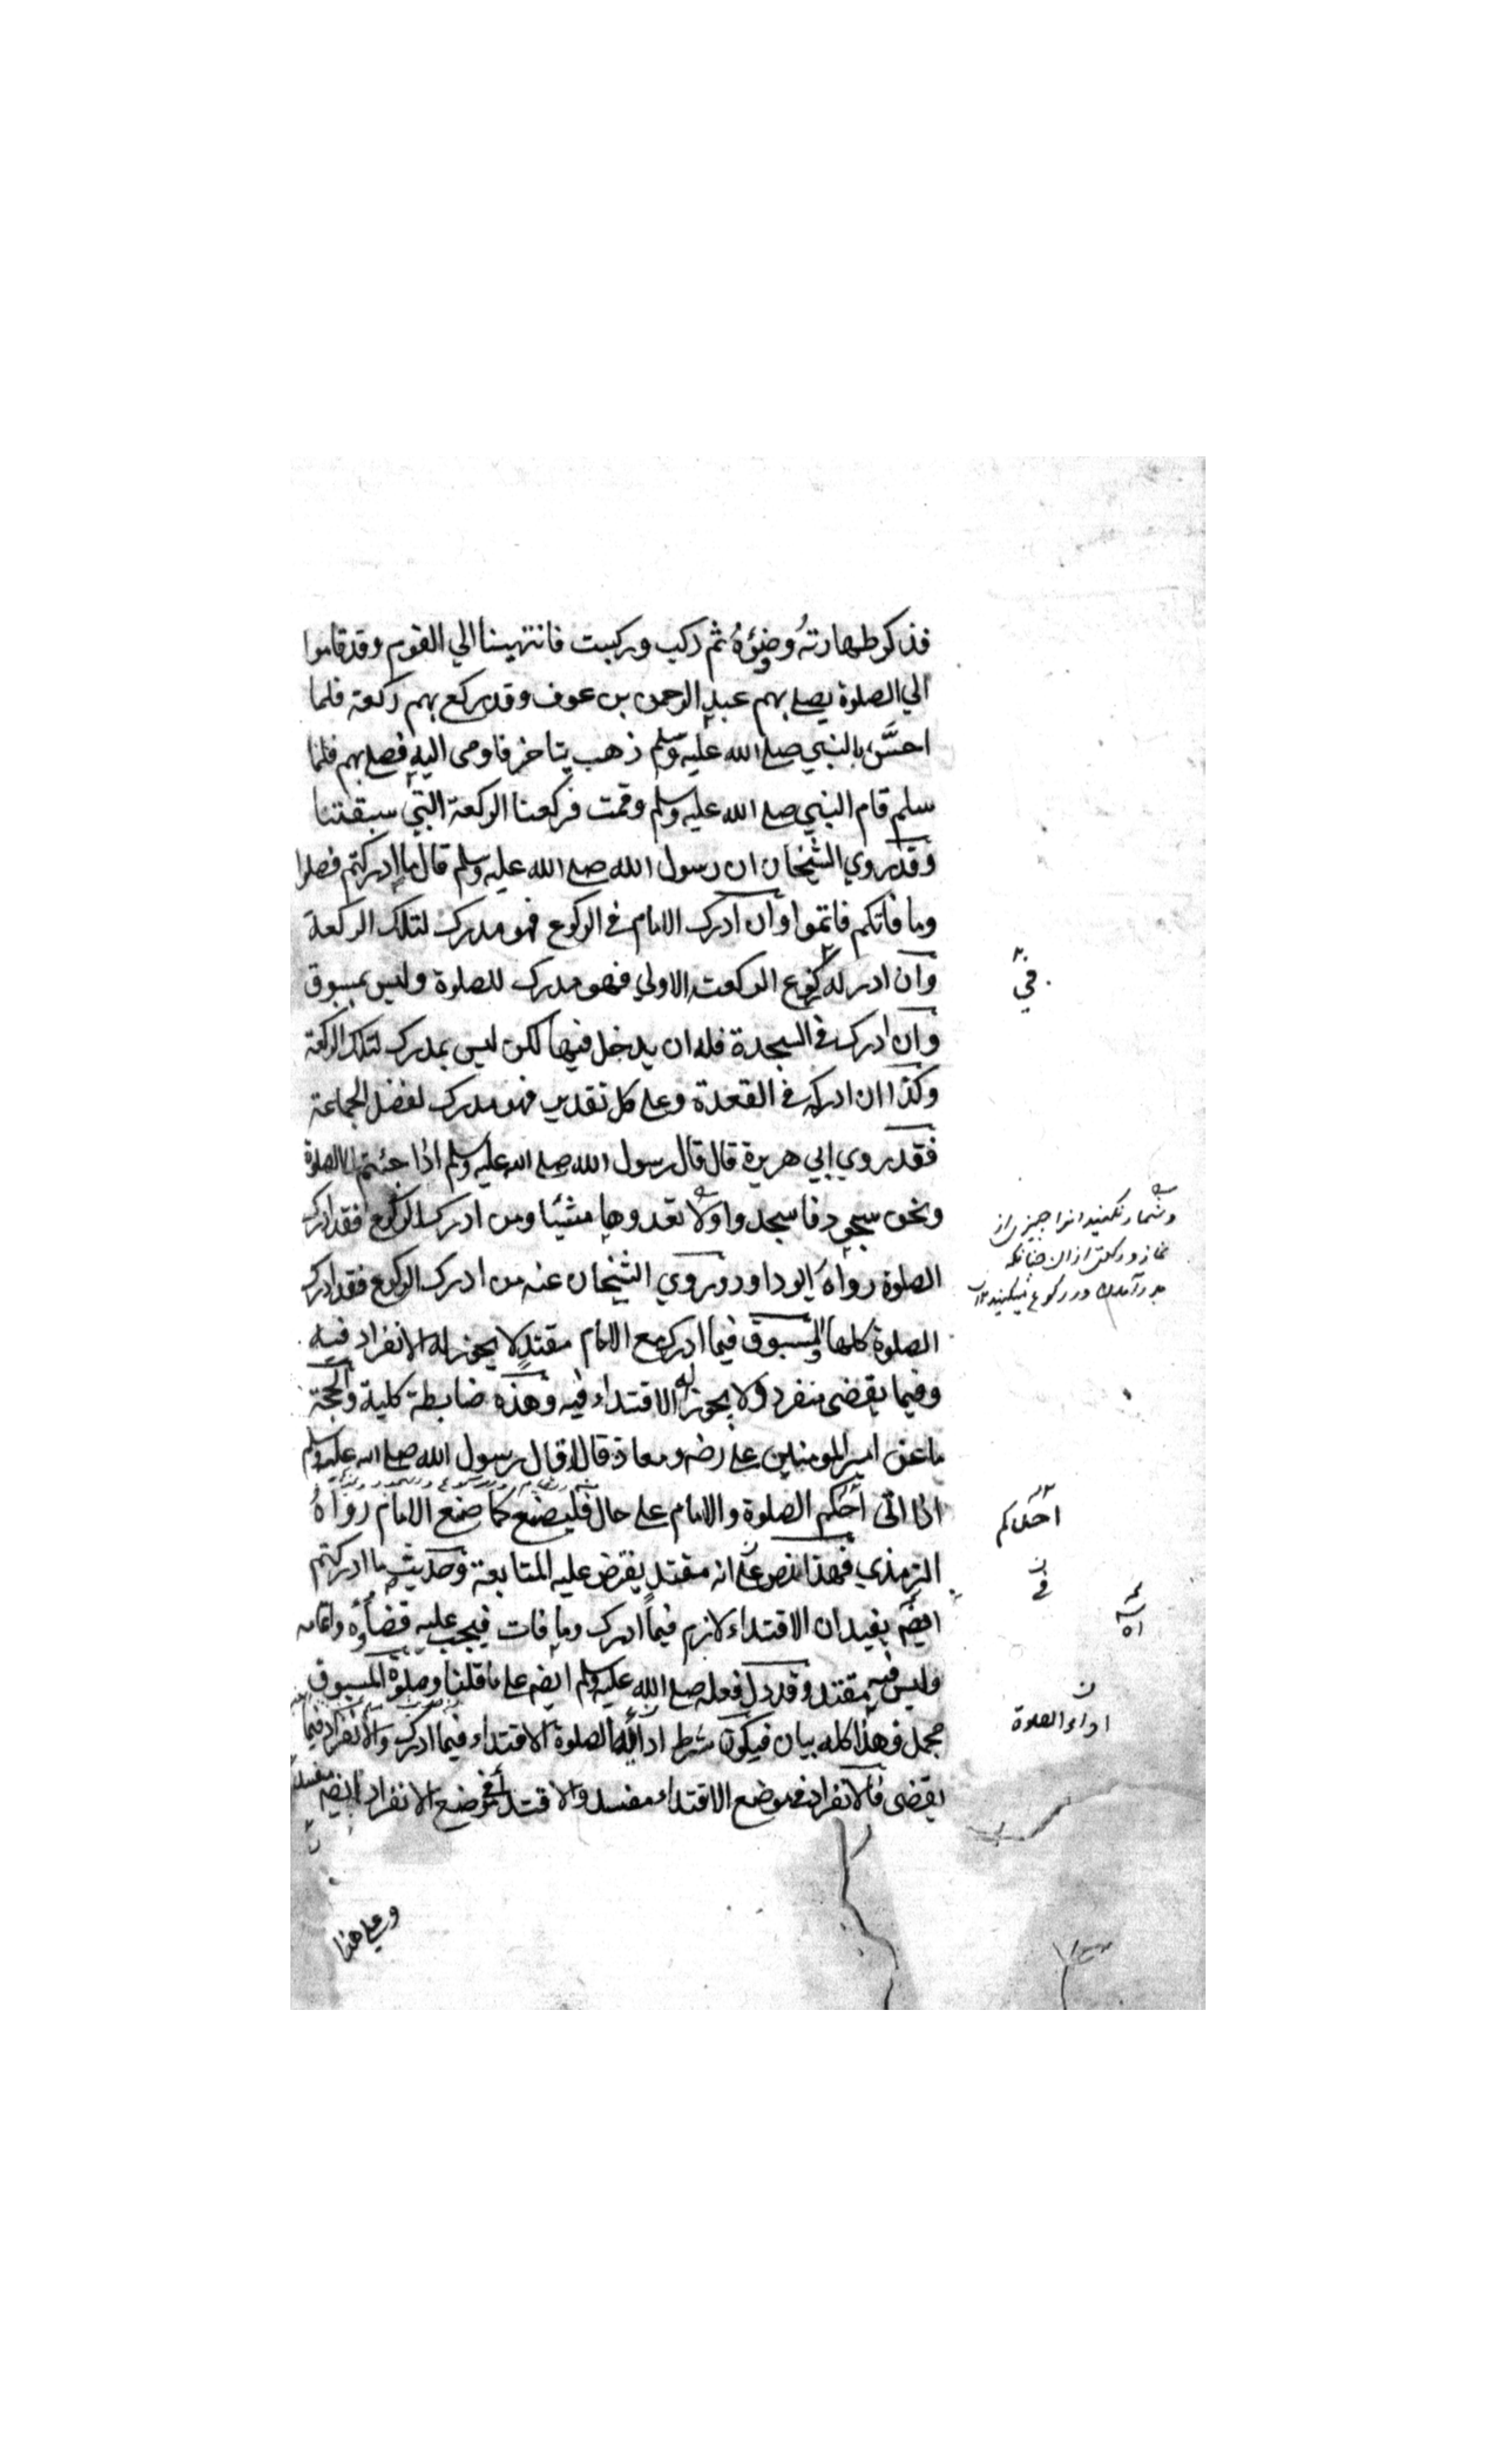 فذكر طهارته وضوؤه ثم ركب وركبت فانتهينا الي القوم وقد قاموا
الي الصلوة يصلے بهم عبد الرحمن بن عوف وقد ركع بهم ركعة فلما
احسَّ بالنبي صلے الله عليه وسلم ذهب يتاخر فاومى اليه فصلے بهم فلما
سلم قام النبي صلے الله عليه وسلم وقمت فركعنا الركعة التي سبقتنا
وقد روي الشيخان ان رسول الله صلے الله عليه وسلم قال ما ادركتم فصلوا
وما فاتكم فاتموا وان ادرك الامام في الركوع فهو مدرك لتلك الركعة
وان ادركه ركوع الركعت الاولي فهو مدرك للصلوة وليس بمسبوق
في
وان ادرك في السجدة فله ان يدخل فيها لكن ليس بمدرك لتلك الركعة
وكذا ان ادركه في القعدة وعلے كل تقدير فهو مدرك لفضل الجماعة
فقد روي ابي هريرة قال قال رسول الله صلے الله عليه وسلم اذا جئتم الي الصلوة
ونحن سجود فاسجدوا ولا تعدوها شيئا ومن ادرك الركوع فقد ادرك
وشمار نكنيد انرا چيزى از
نماز و ركعتى ازان چنانكه
در ركوع ميكنيد ١٢
الصلوة رواه ابو داود وروي الشيخان عنه من ادرك الركوع فقد ادرك
الصلوة كلها والمسبوق فيما ادرك مع الامام مقتدٍ لا يجوز له الانفراد فيه
وفيما يقضى منفرد ولا يجوز له الاقتداء فيه وهذه ضابطة كلية والحجة
ما عن امير المومنين علے رضه ومعاذ قالا قال رسول الله صلے الله عليه وسلم
اذا اتى احدكم الصلوة والامام علے حال فليصنع كما صنع الامام رواه
احدكم
الترمذي فهذا نص علے انه مقتدٍ يفترض عليه المتابعة وحديث ما ادركتم
في
ايضه يفيد ان الاقتداء لازم فيما ادرك وما فات فيجب عليه قضاؤه واتمامه
وليس فيه بمقتد وقد دل فعله صلے الله عليه وسلم ايضه علے ما قلنا وصلوة المسبوق
مجمل فهذا كله بيان فيكون شرط اداء الصلوة الاقتداء فيما ادرك والانفراد فيما
اداء الصلوة
يقضى فالانفراد في موضع الاقتداء مفسد والاقتداء في موضع الانفراد ايضه مفسد
وعلے هذا